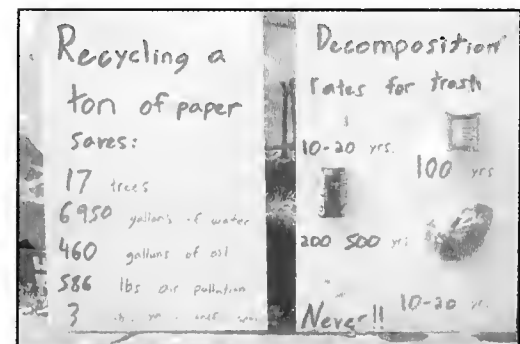 Recycling a
ton of paper
saves:
17 trees
6950 gallons of water
460 gallons of oil
586 lbs air pollution
3
Decomposition
rates for trash
10-20 yrs.
100 yrs
200 500 yrs
10-20 yr.
Never!!